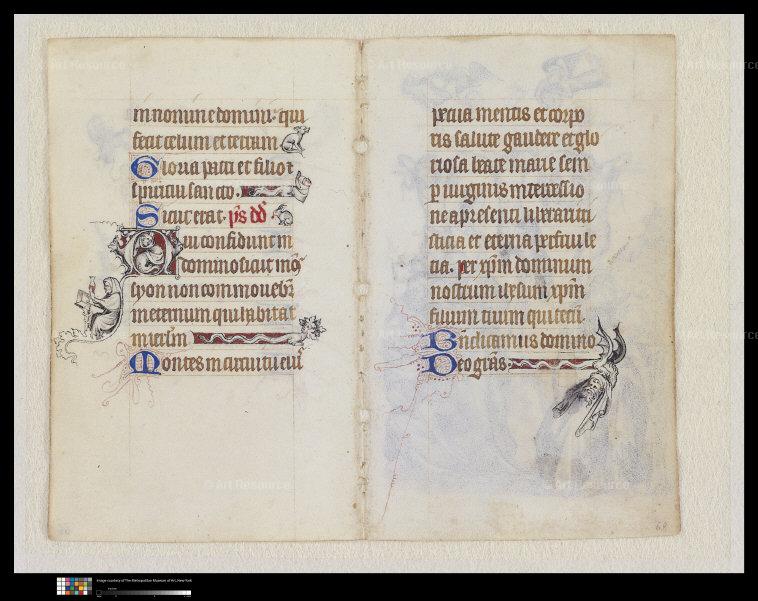 in nomine domini. qui
fecit celum et terram
Gloria patri et filio ⁊
spiritui sancto.
Sicut erat. p̄s dd̄
Qui confidunt in
domino sicut mōs
syon non commouebit᷑
in eternum qui habitat
in ierlm̄
Montes in circuitu eiꝰ
petua mentis et corpo
ris salute gaudere et glo
riosa beate marie sem
ꝑ uirginis intercessio
ne a presenti liberari tri
sticia et eterna perfrui le
ticia. per xp̄m dominum
nostrum ihesum xp̄m
filium tuum qui tecū
Benedicamus domino
Deo grās
68
© Art Resource
Image courtesy of The Metropolitan Museum of Art, New York